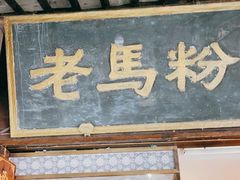 老馬粉